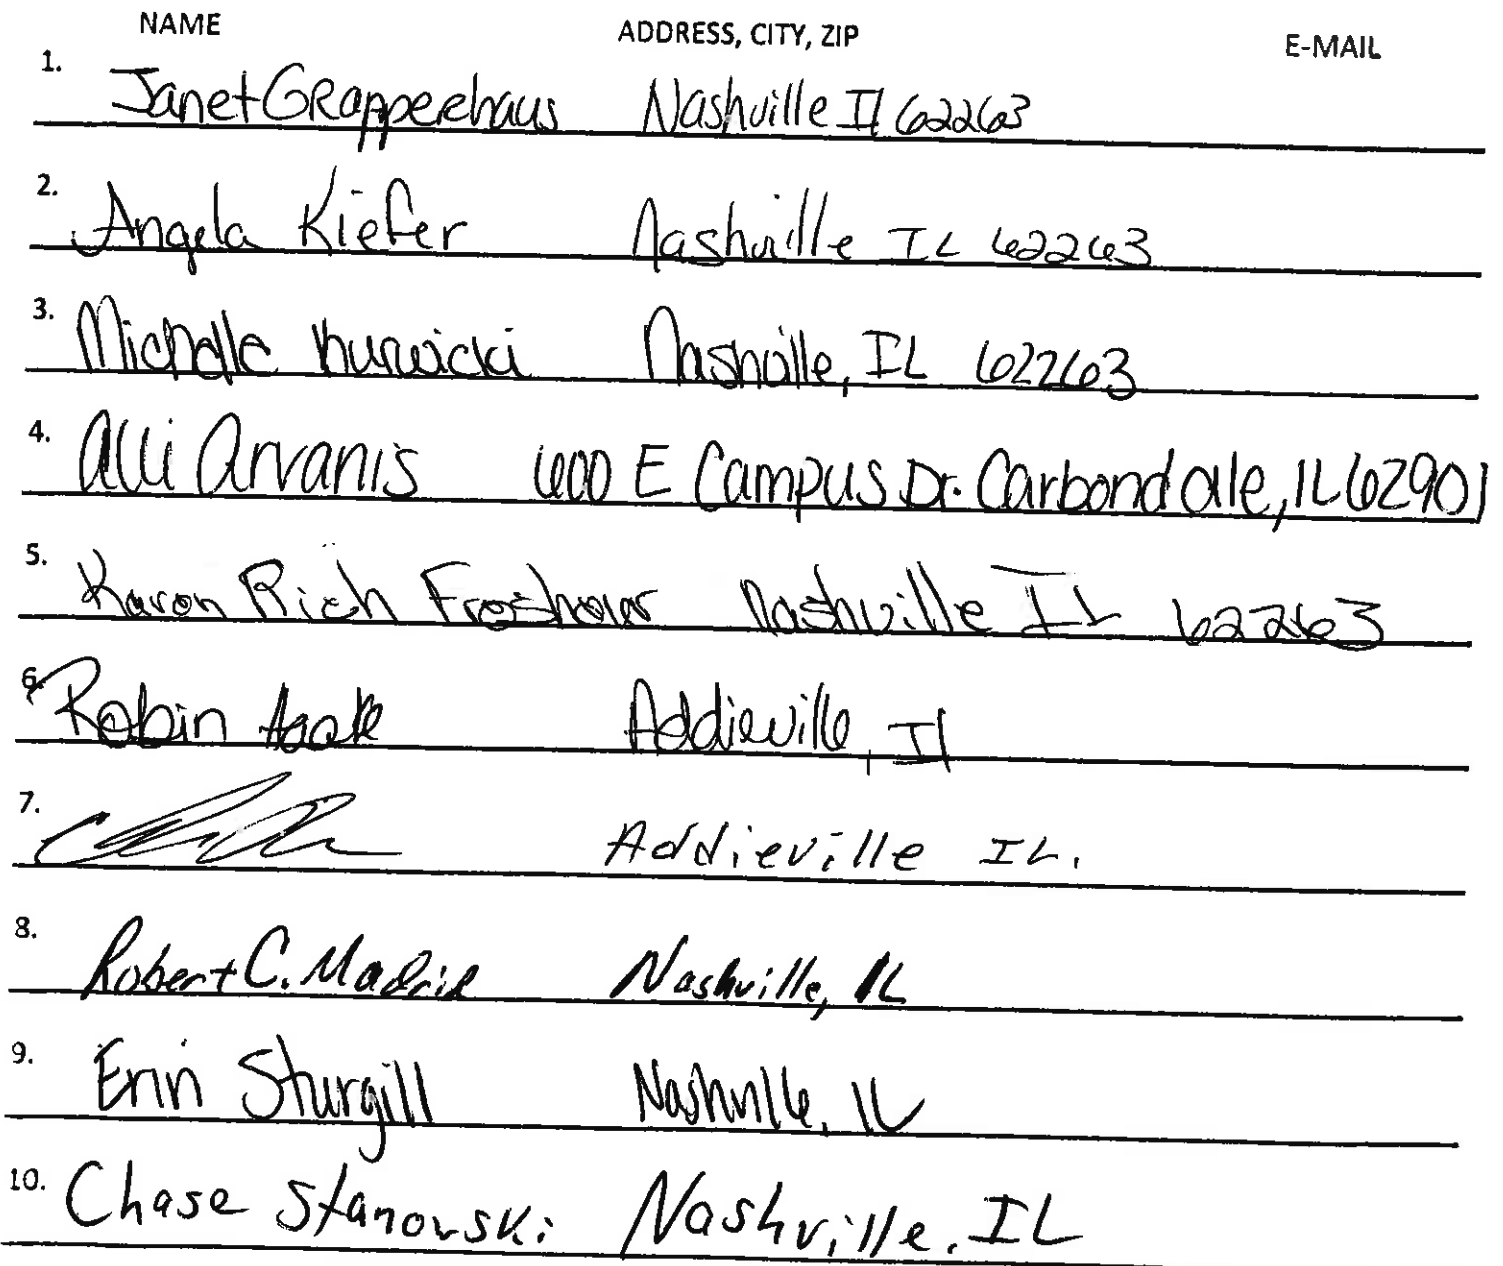 NAME ADDRESS, CITY, ZIP E-MAIL
1. Janet Grapperhaus Nashville Il 62263
2. Angela Kiefer Nashville IL 62263
3. Michelle Kurwicki Nashville, IL 62263
4. Alli Arvanis 600 E Campus Dr. Carbondale, IL 62901
5. Karen Rich Nashville IL 62263
6. Robin Haake Addieville, Il
7. Addieville IL.
8. Robert C. Madrid Nashville, IL
9. Erin Sturgill Nashville, IL
10. Chase Stanowski Nashville, IL